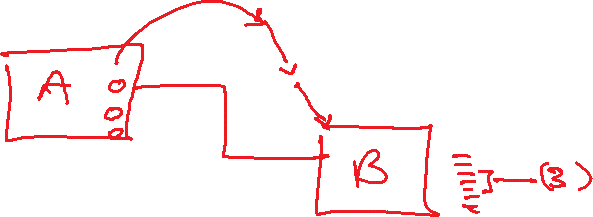 A
B
(3)